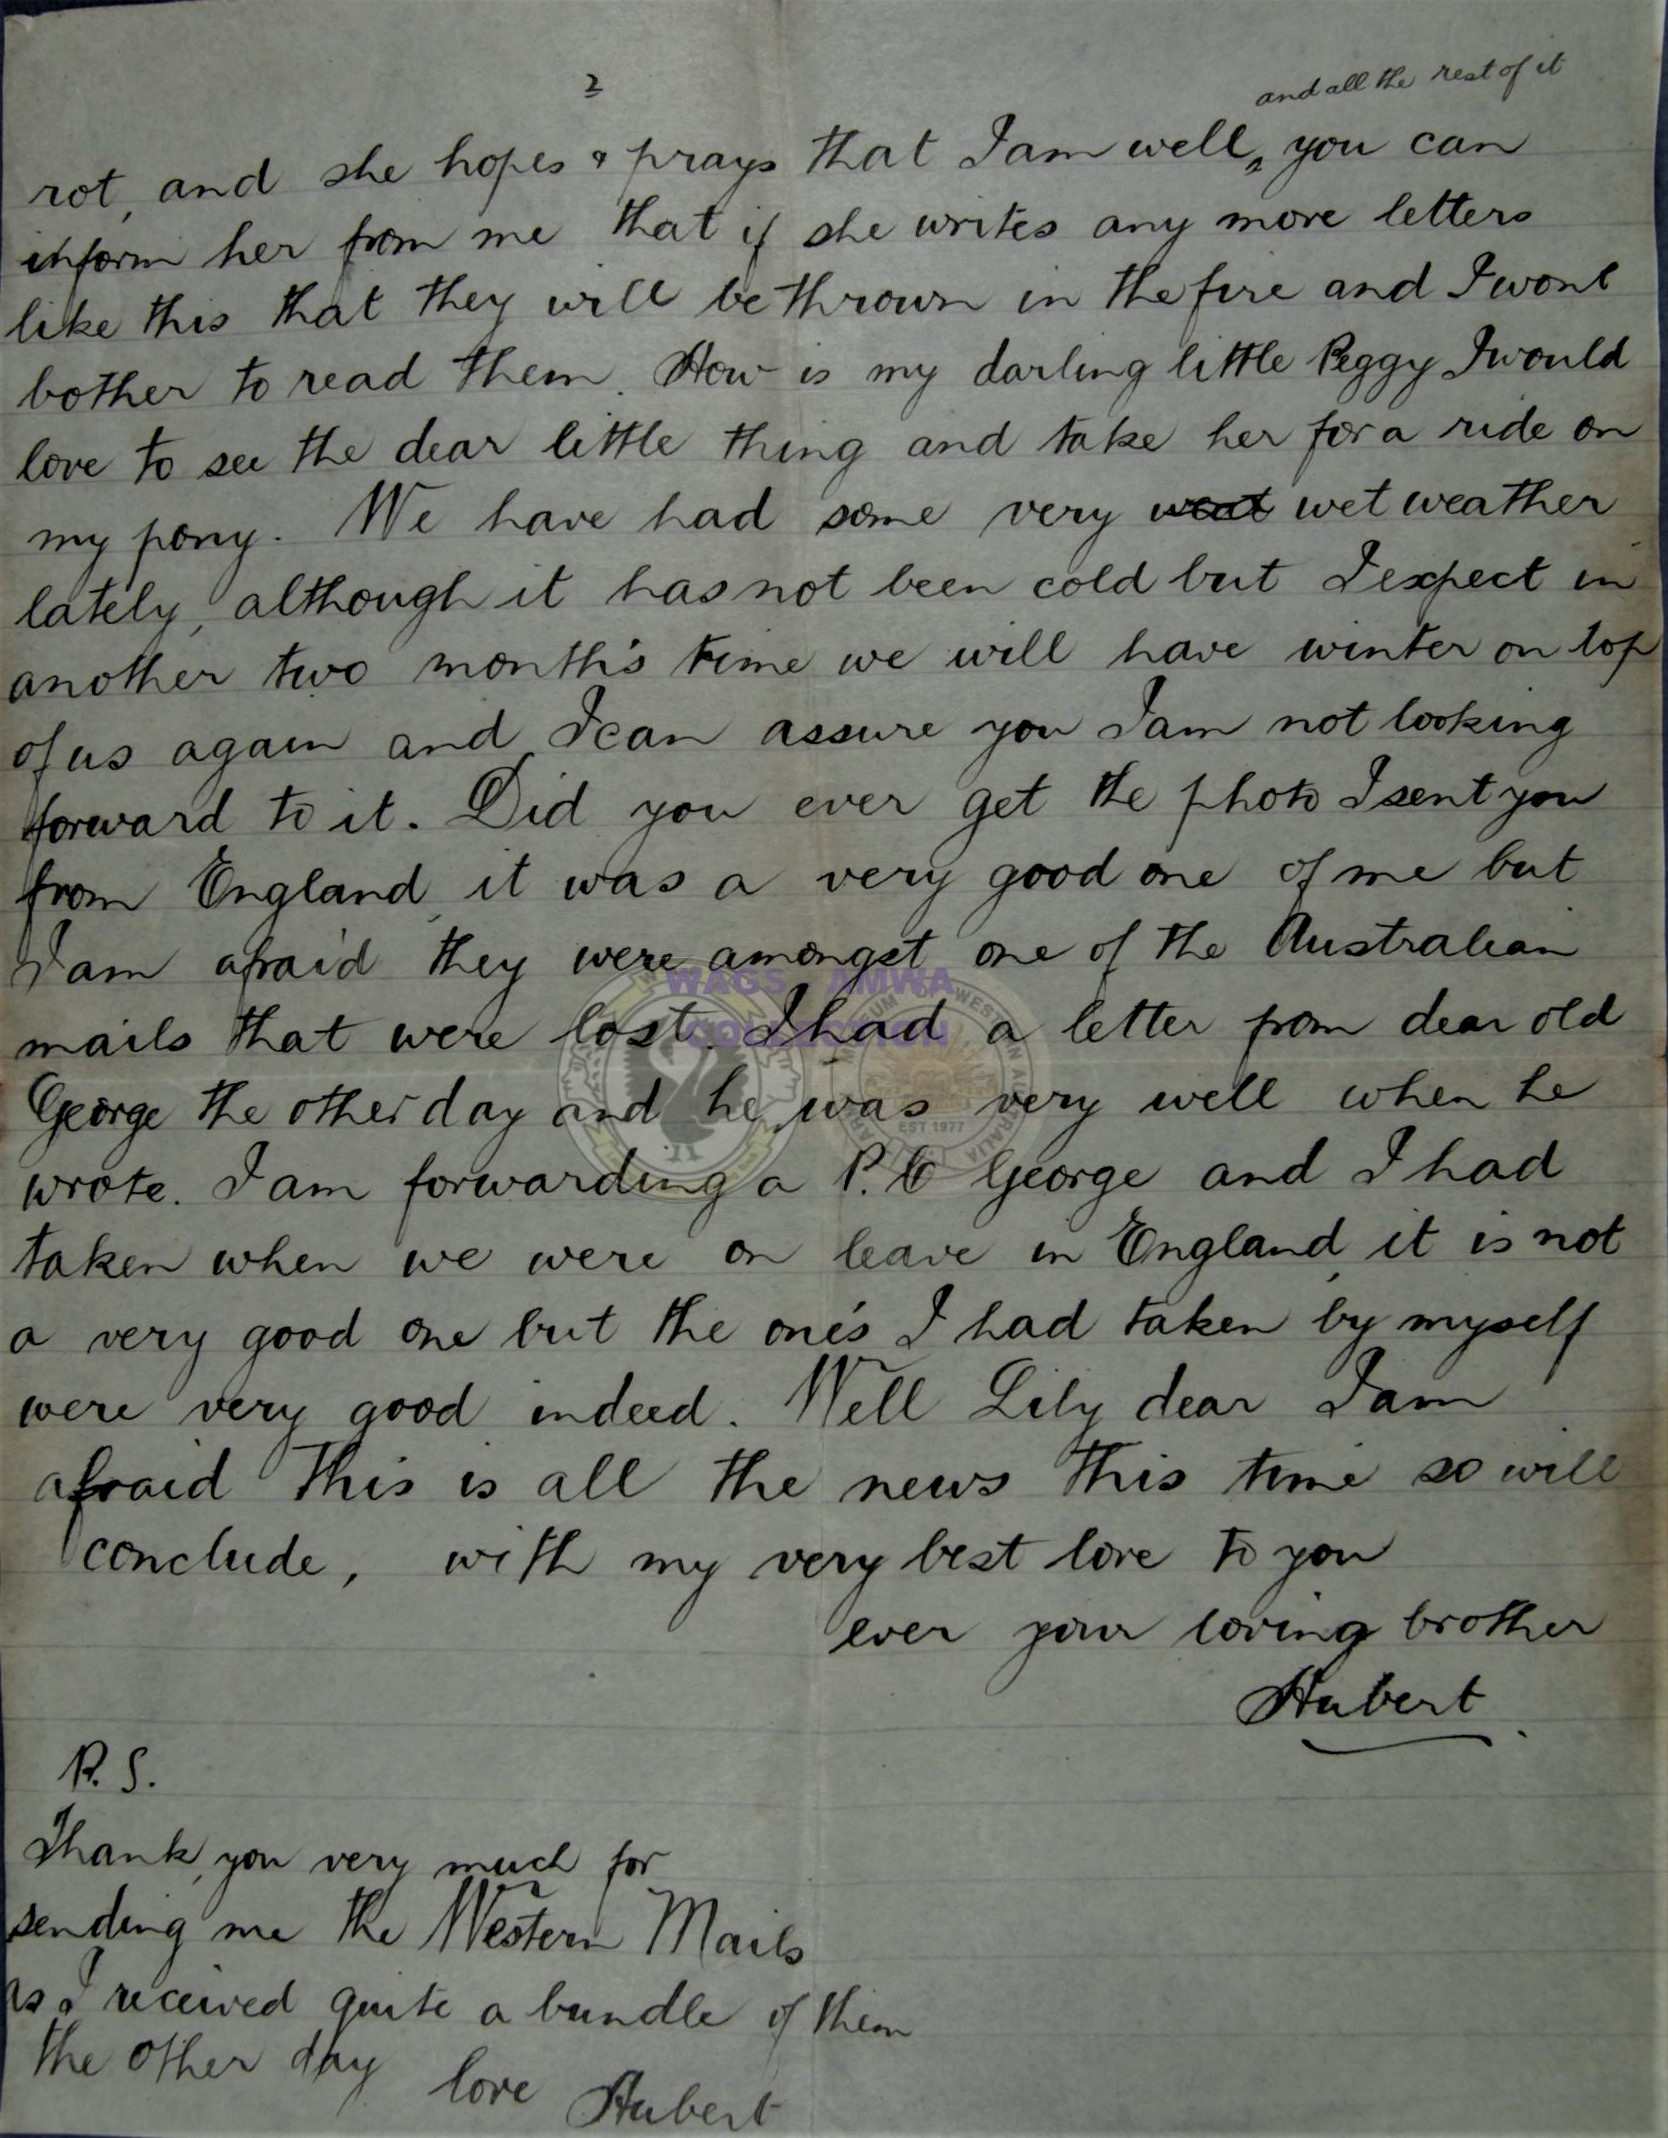 2
and all the rest of it
rot, and she hopes & prays that I am well, you can
inform her from me that if she writes any more letters
like this that they will be thrown in the fire and I wont
bother to read them. How is my darling little Peggy I would
love to see the dear little thing and take her for a ride on
my pony. We have had some very weat wet weather
lately, although it has not been cold but I expect in
another two month's time we will have winter on top
of us again and I can assure you I am not looking
forward to it. Did you ever get the photo I sent you
from England, it was a very good one of me but
I am afraid they were amongst one of the Australian
WAGS AMWA
COLLECTION
mails that were lost. I had a letter from dear old
George the other day and he was very well when he
EST 1977
wrote. I am forwarding a P.C George and I had
taken when we were on leave in England, it is not
a very good one but the one's I had taken by myself
were very good indeed. Well Lily dear I am
afraid this is all the news this time so will
conclude, with my very best love to you
ever your loving brother
Hubert.
P.S.
Thank you very much for
sending me the Western Mails
as I received quite a bundle of them
the other day love Hubert